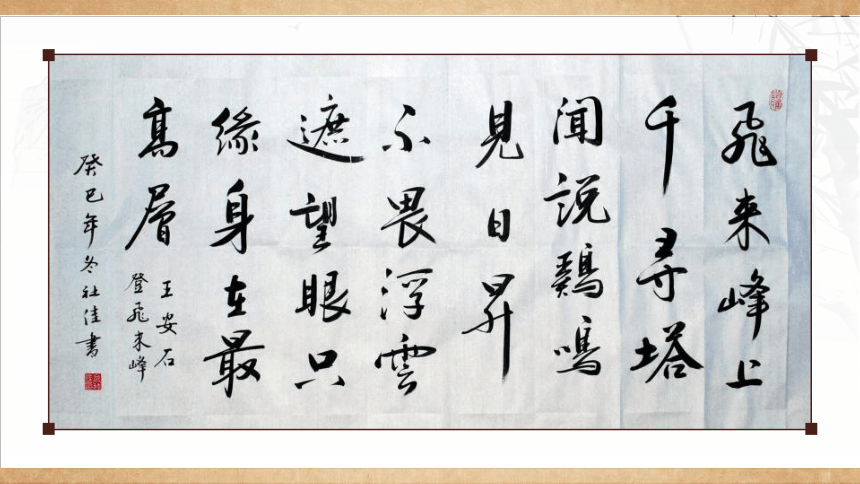 飛来峰上
千尋塔
聞説鷄鳴
見日昇
不畏浮雲
遮望眼只
緣身在最
髙層
王安石
登飛来峰
癸巳年冬社佳書